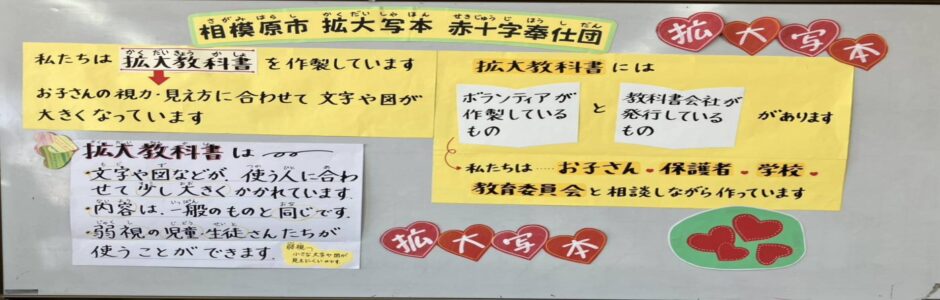 相模原市 拡大写本 赤十字奉仕団
拡大写本
私たちは 拡大教科書 を作製しています
お子さんの視力・見え方に合わせて 文字や図が
大きくなっています
拡大教科書には
ボランティアが
作製している
もの
と
教科書会社が
発行している
もの
があります
私たちは……お子さん・保護者・学校・
教育委員会と相談しながら作っています
拡大教科書は
・文字や図などが、使う人に合わ
せて少し大きくかかれています.
・内容は、一般のものと同じです.
・弱視の児童・生徒さんたちが
使うことができます.
弱視…
小さな文字や図が
見えにくい
拡大写本